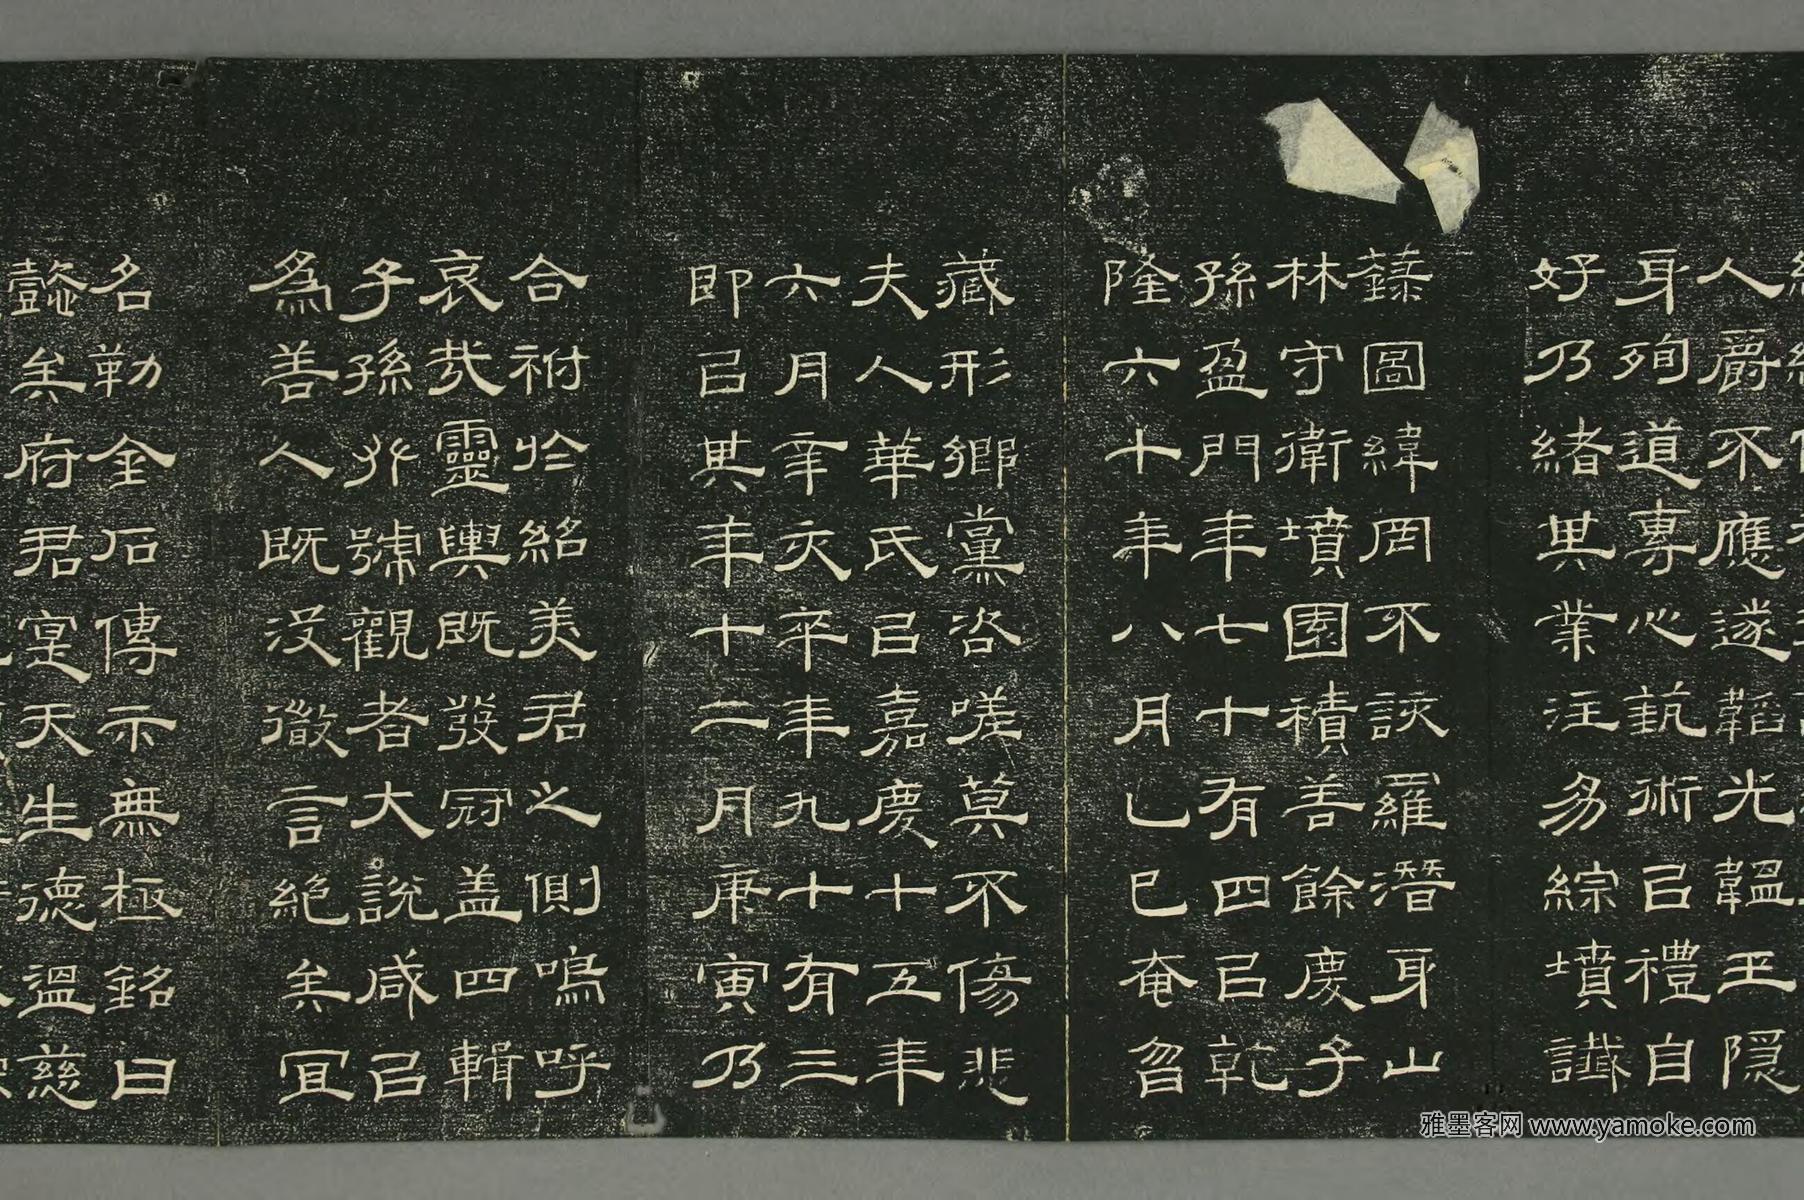 人爵不應遂韜光韞玉隱
身殉道專心藝術以禮自
好乃緒其業注易綜墳讖
圖緯罔不該羅潛身山
林守衛墳園積善餘慶子
孫盈門年七十有四以乾
隆六十年八月乙巳奄曶
藏形鄉黨咨嗟莫不傷悲
夫人華氏以嘉慶十五年
六月辛亥卒年九十有三
即以其年十二月庚寅乃
合祔於絡美君之側嗚呼
哀哉靈輿既發冠盖四輯
子孫號觀者大說咸以
為善人既沒微言絕矣宜
名勒金石傳示無極銘曰
懿矣府君寔天生德溫慈
雅墨客网 www.yamoke.com